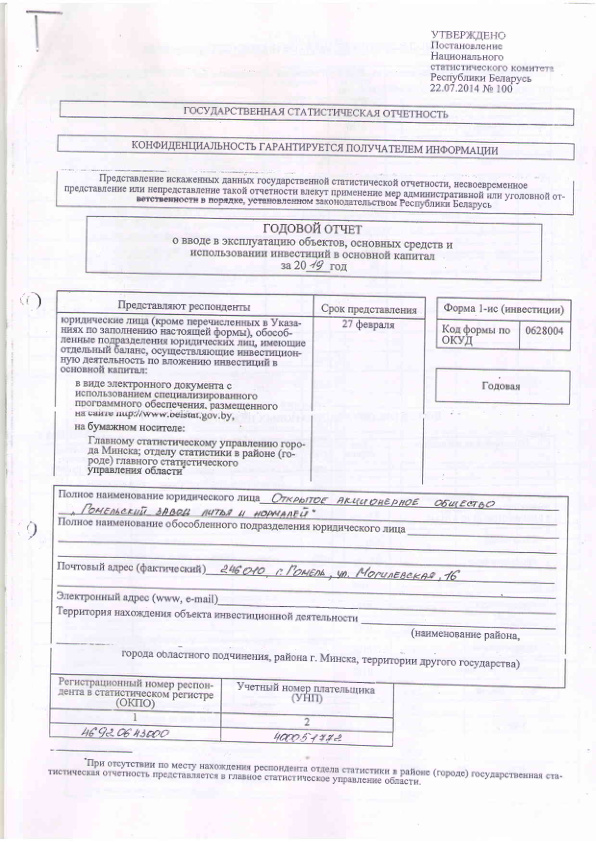 УТВЕРЖДЕНО
Постановление
Национального
статистического комитета
Республики Беларусь
22.07.2014 № 100
ГОСУДАРСТВЕННАЯ СТАТИСТИЧЕСКАЯ ОТЧЕТНОСТЬ
КОНФИДЕНЦИАЛЬНОСТЬ ГАРАНТИРУЕТСЯ ПОЛУЧАТЕЛЕМ ИНФОРМАЦИИ
Представление искаженных данных государственной статистической отчетности, несвоевременное
представление или непредставление такой отчетности влекут применение мер административной или уголовной от-
ветственности в порядке, установленном законодательством Республики Беларусь
ГОДОВОЙ ОТЧЕТ
о вводе в эксплуатацию объектов, основных средств и
использовании инвестиций в основной капитал
за 2019 год
Представляют респонденты
Срок представления
юридические лица (кроме перечисленных в Указа-
ниях по заполнению настоящей формы), обособ-
ленные подразделения юридических лиц, имеющие
отдельный баланс, осуществляющие инвестицион-
ную деятельность по вложению инвестиций в
основной капитал:
в виде электронного документа с
использованием специализированного
программного обеспечения, размещенного
на сайте http://www.belstat.gov.by,
на бумажном носителе:
Главному статистическому управлению горо-
да Минска; отделу статистики в районе (го-
роде) главного статистического
управления области*
27 февраля
Форма 1-ис (инвестиции)
Код формы по ОКУД
0628004
Годовая
Полное наименование юридического лица Открытое акционерное общество
"Гомельский завод литья и нормалей"
Полное наименование обособленного подразделения юридического лица
Почтовый адрес (фактический) 246010, г. Гомель, ул. Могилевская, 16
Электронный адрес (www, e-mail)
Территория нахождения объекта инвестиционной деятельности
(наименование района,
города областного подчинения, района г. Минска, территории другого государства)
Регистрационный номер респон-
дента в статистическом регистре
(ОКПО)
Учетный номер плательщика
(УНП)
1
2
400051772
*При отсутствии по месту нахождения респондента отдела статистики в районе (городе) государственная ста-
тистическая отчетность представляется в главное статистическое управление области.